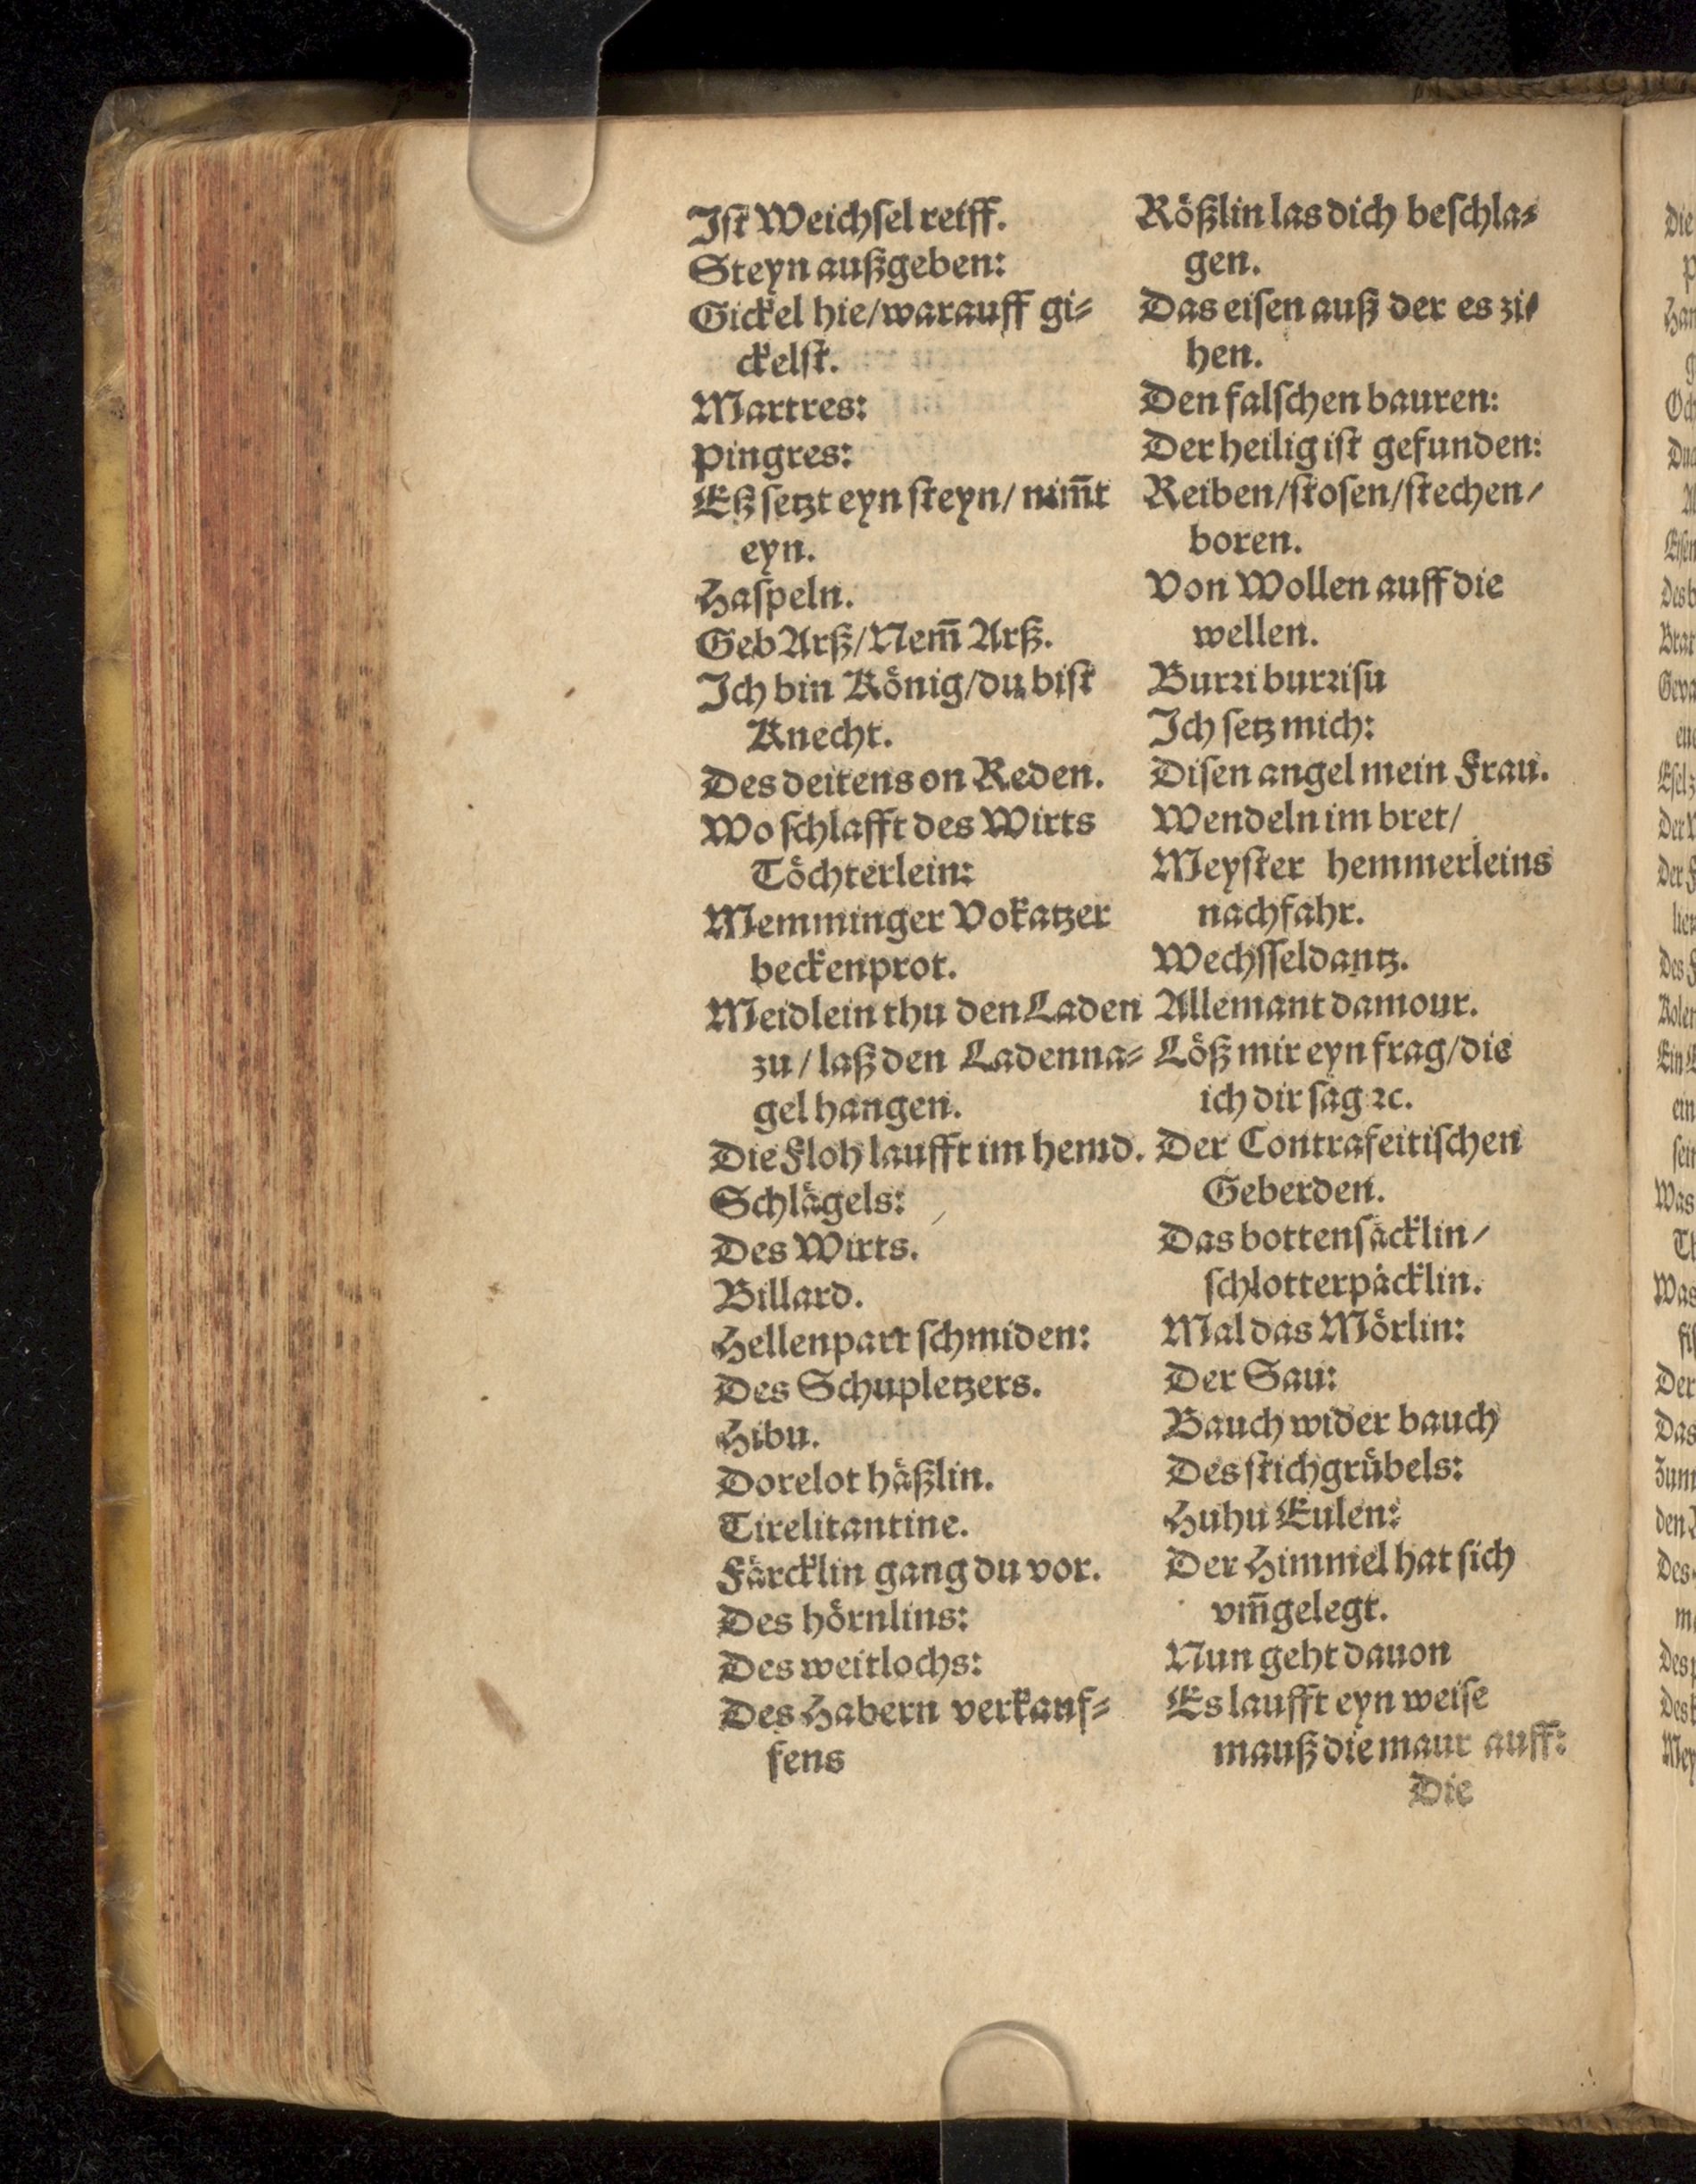 Iſt Weichſel reiff.
Steyn außgeben:
Gickel hie/warauff gi⸗
ckelſt.
Martres:
Pingres:
Eß ſetzt eyn ſteyn/ nim̃t
eyn.
Haſpeln.
Geb Arß/Nem̃ Arß.
Ich bin König/du biſt
Knecht.
Des deitens on Reden.
Wo ſchlafft des Wirts
Töchterlein:
Memminger Vokatzer
beckenprot.
Meidlein thu den Laden
zu/ laß den Ladenna⸗
gel hangen.
Die Floh laufft im hemd.
Schlägels:
Des Wirts.
Billard.
Hellenpart ſchmiden:
Des Schupletzers.
Hibu.
Dorelot häßlin.
Tirelitantine.
Färcklin gang du vor.
Des hörnlins:
Des weitlochs:
Des Habern verkauf⸗
fens
Rößlin las dich beſchla⸗
gen.
Das eiſen auß der es zi⸗
hen.
Den falſchen bauren:
Der heilig iſt gefunden:
Reiben/ſtoſen/ſtechen/
boren.
Von Wollen auff die
wellen.
Burꝛi burꝛiſu
Ich ſetz mich:
Diſen angel mein Frau.
Wendeln im bret/
Meyſter hemmerleins
nachfahr.
Wechſſeldantz.
Allemant damour.
Löß mir eyn frag/die
ich dir ſag ꝛc.
Der Contrafeitiſchen
Geberden.
Das bottenſäcklin/
ſchlotterpäcklin.
Mal das Mörlin:
Der Sau:
Bauch wider bauch
Des ſtichgrübels:
Huhu Eulen:
Der Himmel hat ſich
vm̃gelegt.
Nun geht dauon
Es laufft eyn weiſe
mauß die maur auff:
Die